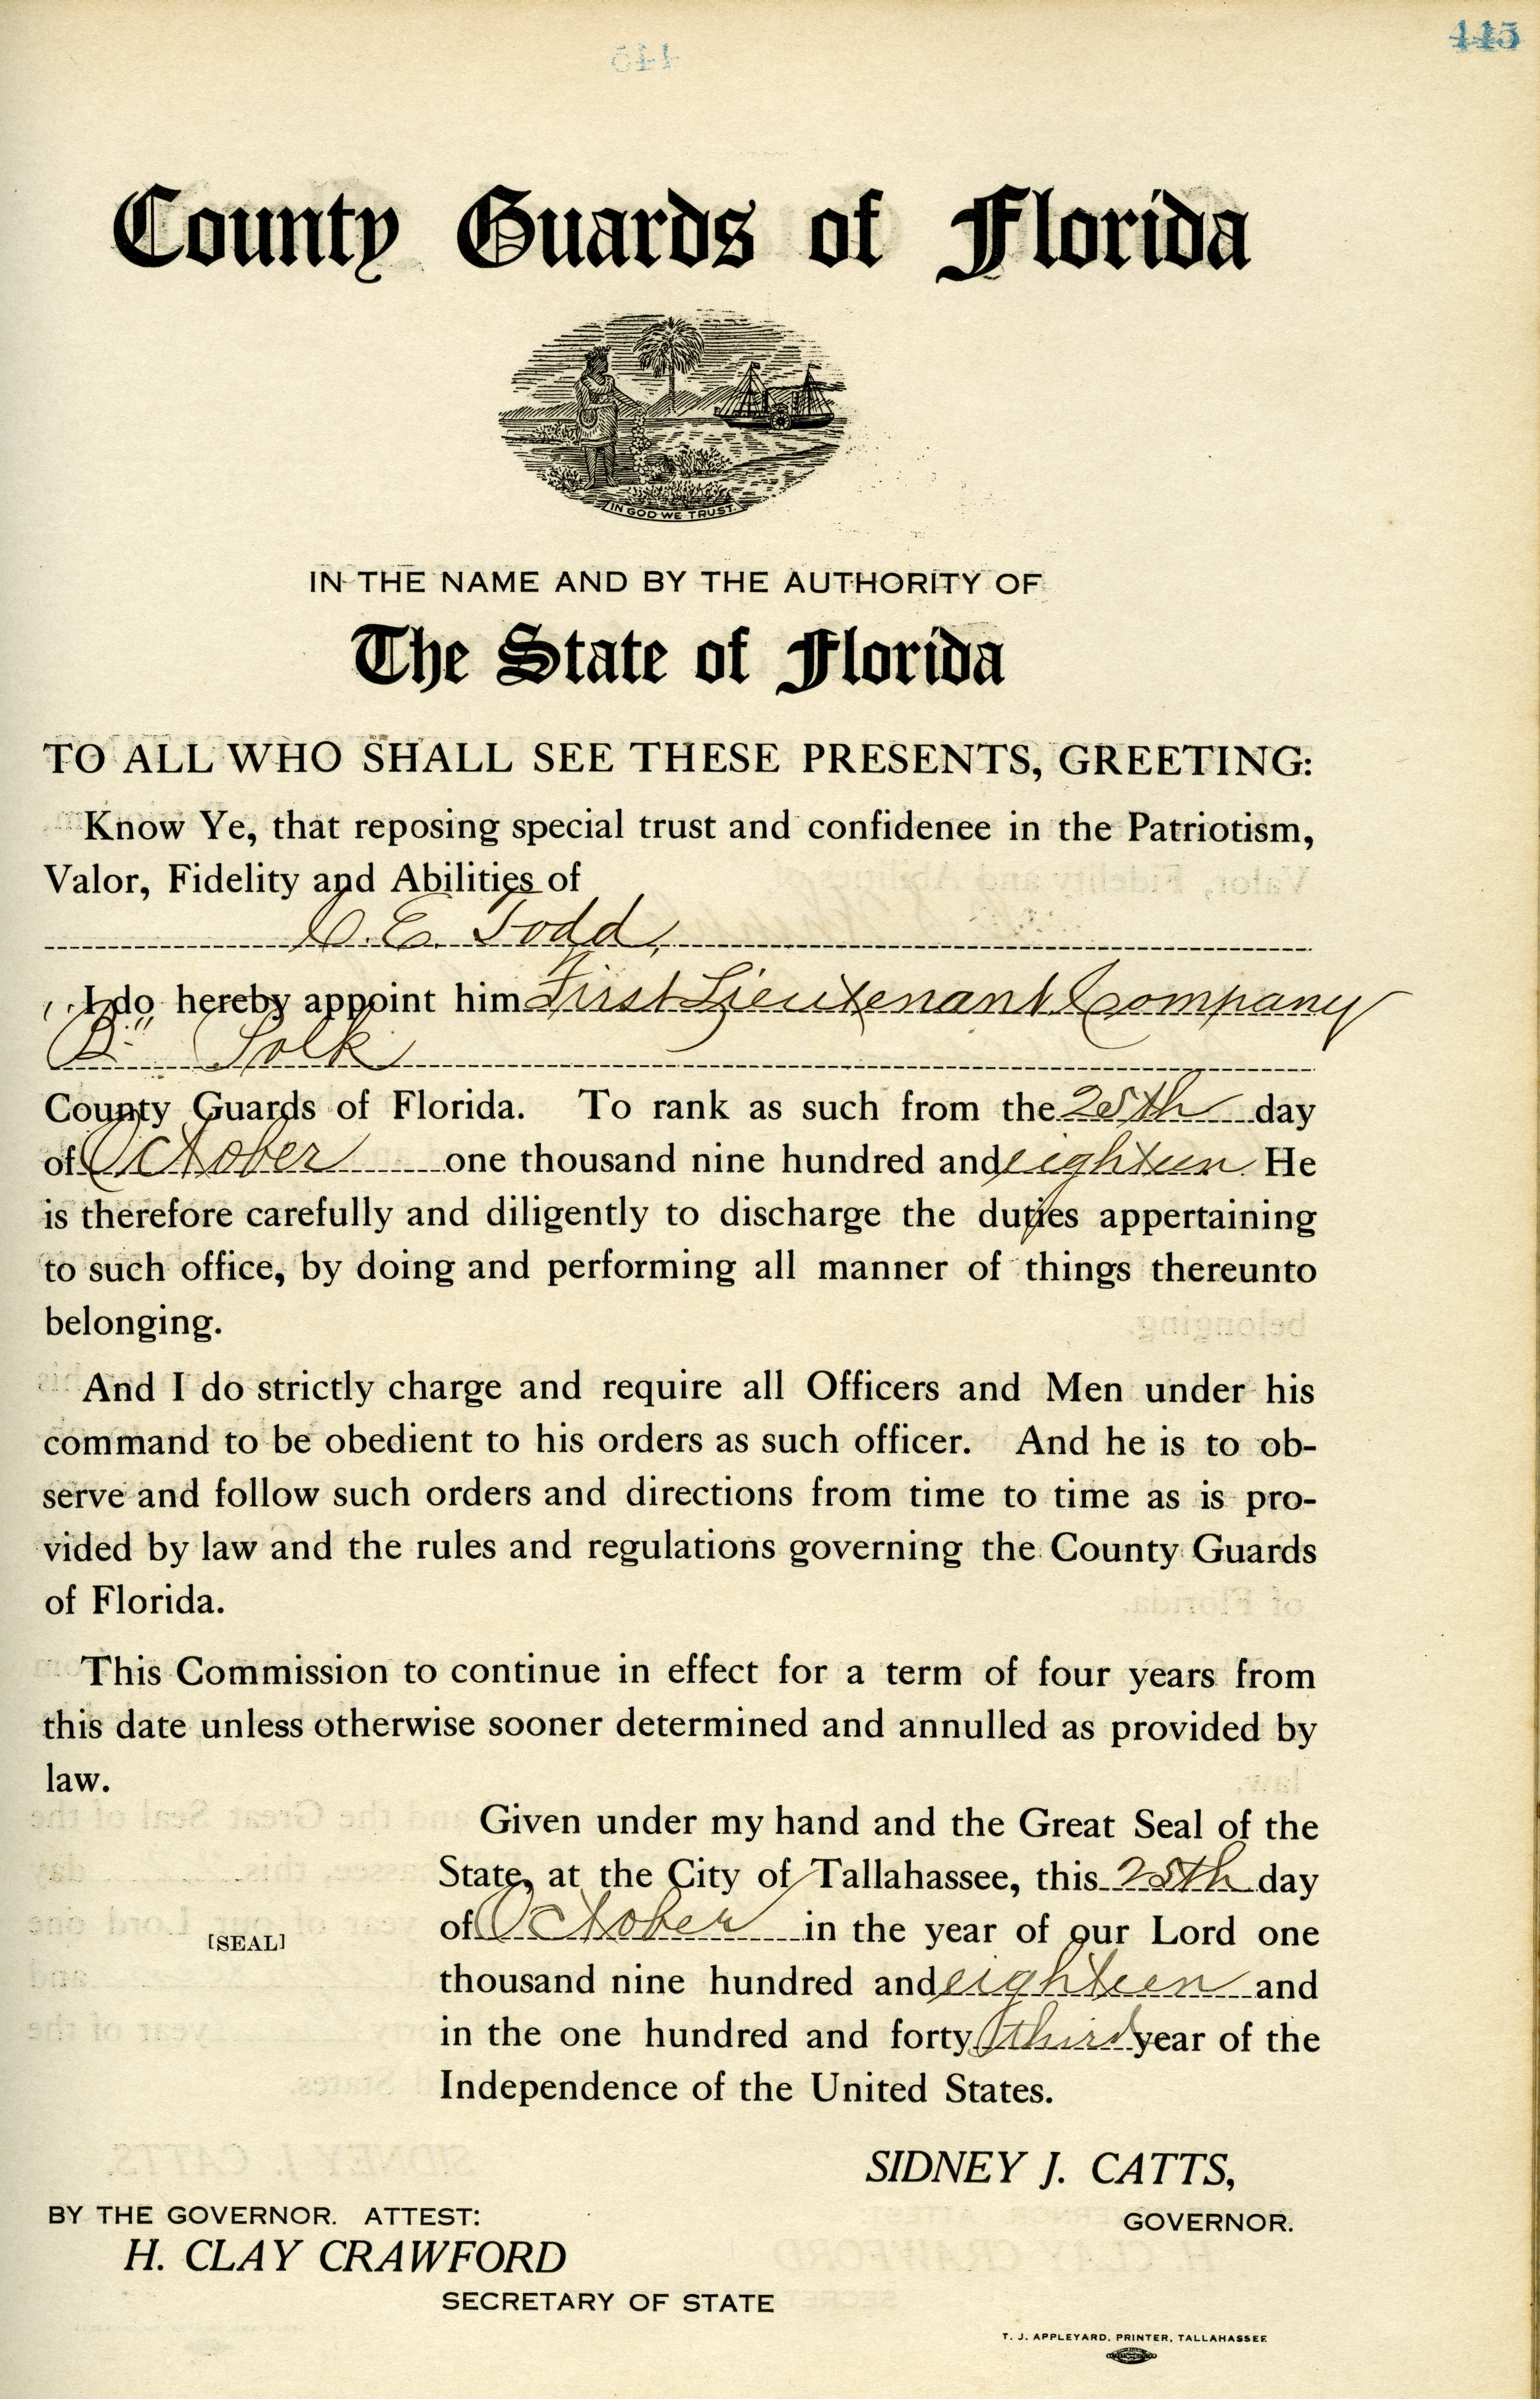 445
County Guards of Florida
IN GOD WE TRUST.
IN THE NAME AND BY THE AUTHORITY OF
The State of Florida
TO ALL WHO SHALL SEE THESE PRESENTS, GREETING:
Know Ye, that reposing special trust and confidenee in the Patriotism,
Valor, Fidelity and Abilities of
C. E. Todd,
I do hereby appoint him First Lieutenant Company
"B" Polk
County Guards of Florida. To rank as such from the 25th day
of October one thousand nine hundred and eighteen He
is therefore carefully and diligently to discharge the duties appertaining
to such office, by doing and performing all manner of things thereunto
belonging.
And I do strictly charge and require all Officers and Men under his
command to be obedient to his orders as such officer. And he is to ob-
serve and follow such orders and directions from time to time as is pro-
vided by law and the rules and regulations governing the County Guards
of Florida.
This Commission to continue in effect for a term of four years from
this date unless otherwise sooner determined and annulled as provided by
law.
Given under my hand and the Great Seal of the
State, at the City of Tallahassee, this 25th day
of October in the year of our Lord one
[SEAL]
thousand nine hundred and eighteen and
in the one hundred and forty third year of the
Independence of the United States.
SIDNEY J. CATTS,
GOVERNOR.
BY THE GOVERNOR. ATTEST:
H. CLAY CRAWFORD
SECRETARY OF STATE
T. J. APPLEYARD, PRINTER, TALLAHASSEE